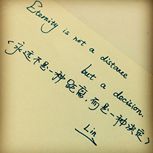 Eternity is not a distance
but a decision.
《永远不是一种距离,而是一种决定》
Lin